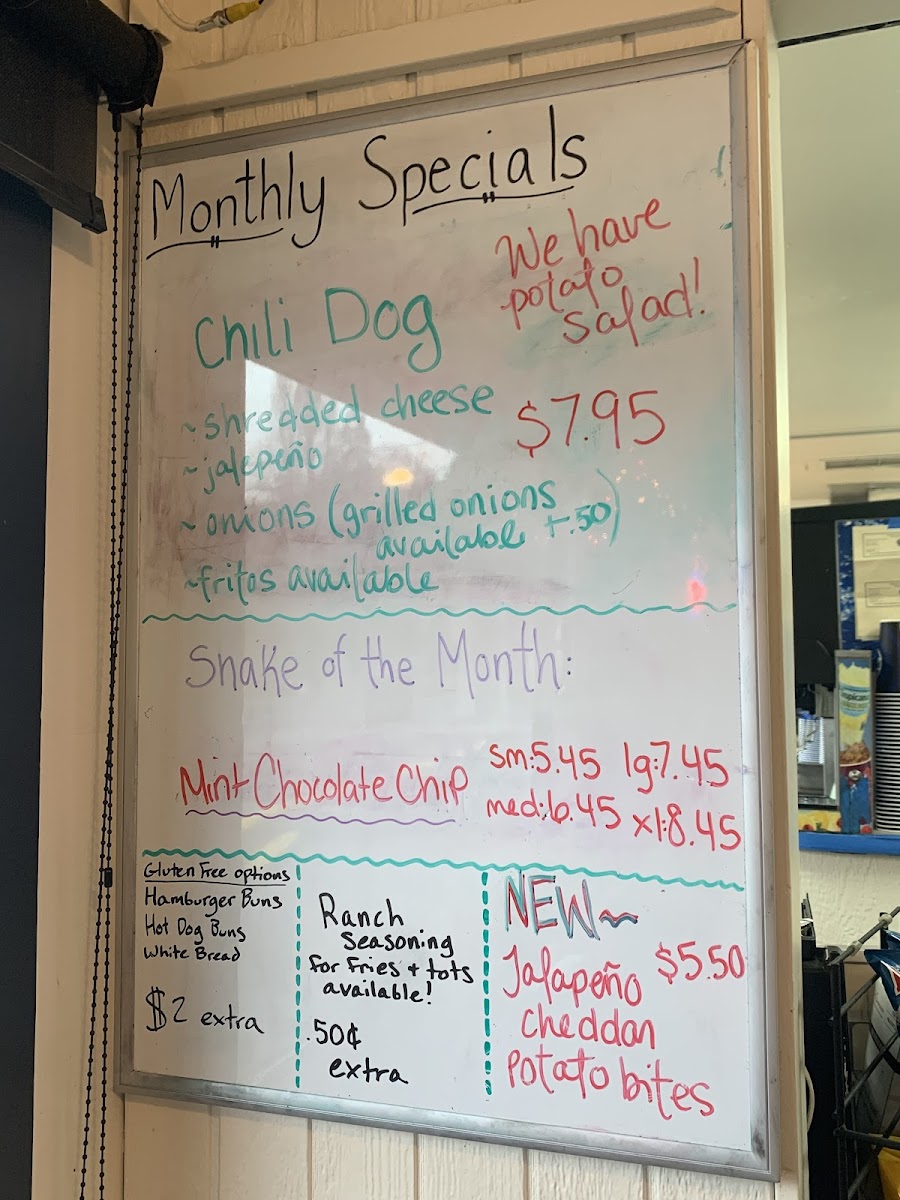 Monthly Specials
We have
potato
salad!
Chili Dog
~shredded cheese
$7.95
~jalepeño
~onions (grilled onions
available +.50)
~fritos available
Shake of the Month:
Mint Chocolate Chip
sm:5.45 lg:7.45
med:6.45 xl:8.45
Gluten Free options
Hamburger Buns
Hot Dog Buns
White Bread
$2 extra
Ranch
Seasoning
for fries + tots
available!
.50¢
extra
NEW~
Jalapeño $5.50
Cheddar
Potato bites